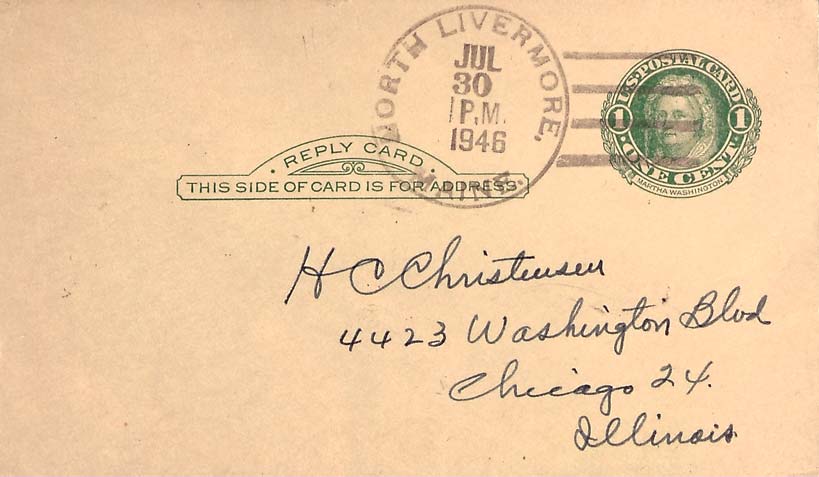 NORTH LIVERMORE,
JUL
30
1 P.M.
1946
MAINE.
U.S. POSTAL CARD
1 1
ONE CENT
MARTHA WASHINGTON
REPLY CARD
THIS SIDE OF CARD IS FOR ADDRESS
H C Christensen
4423 Washington Blvd
Chicago 24.
Illinois